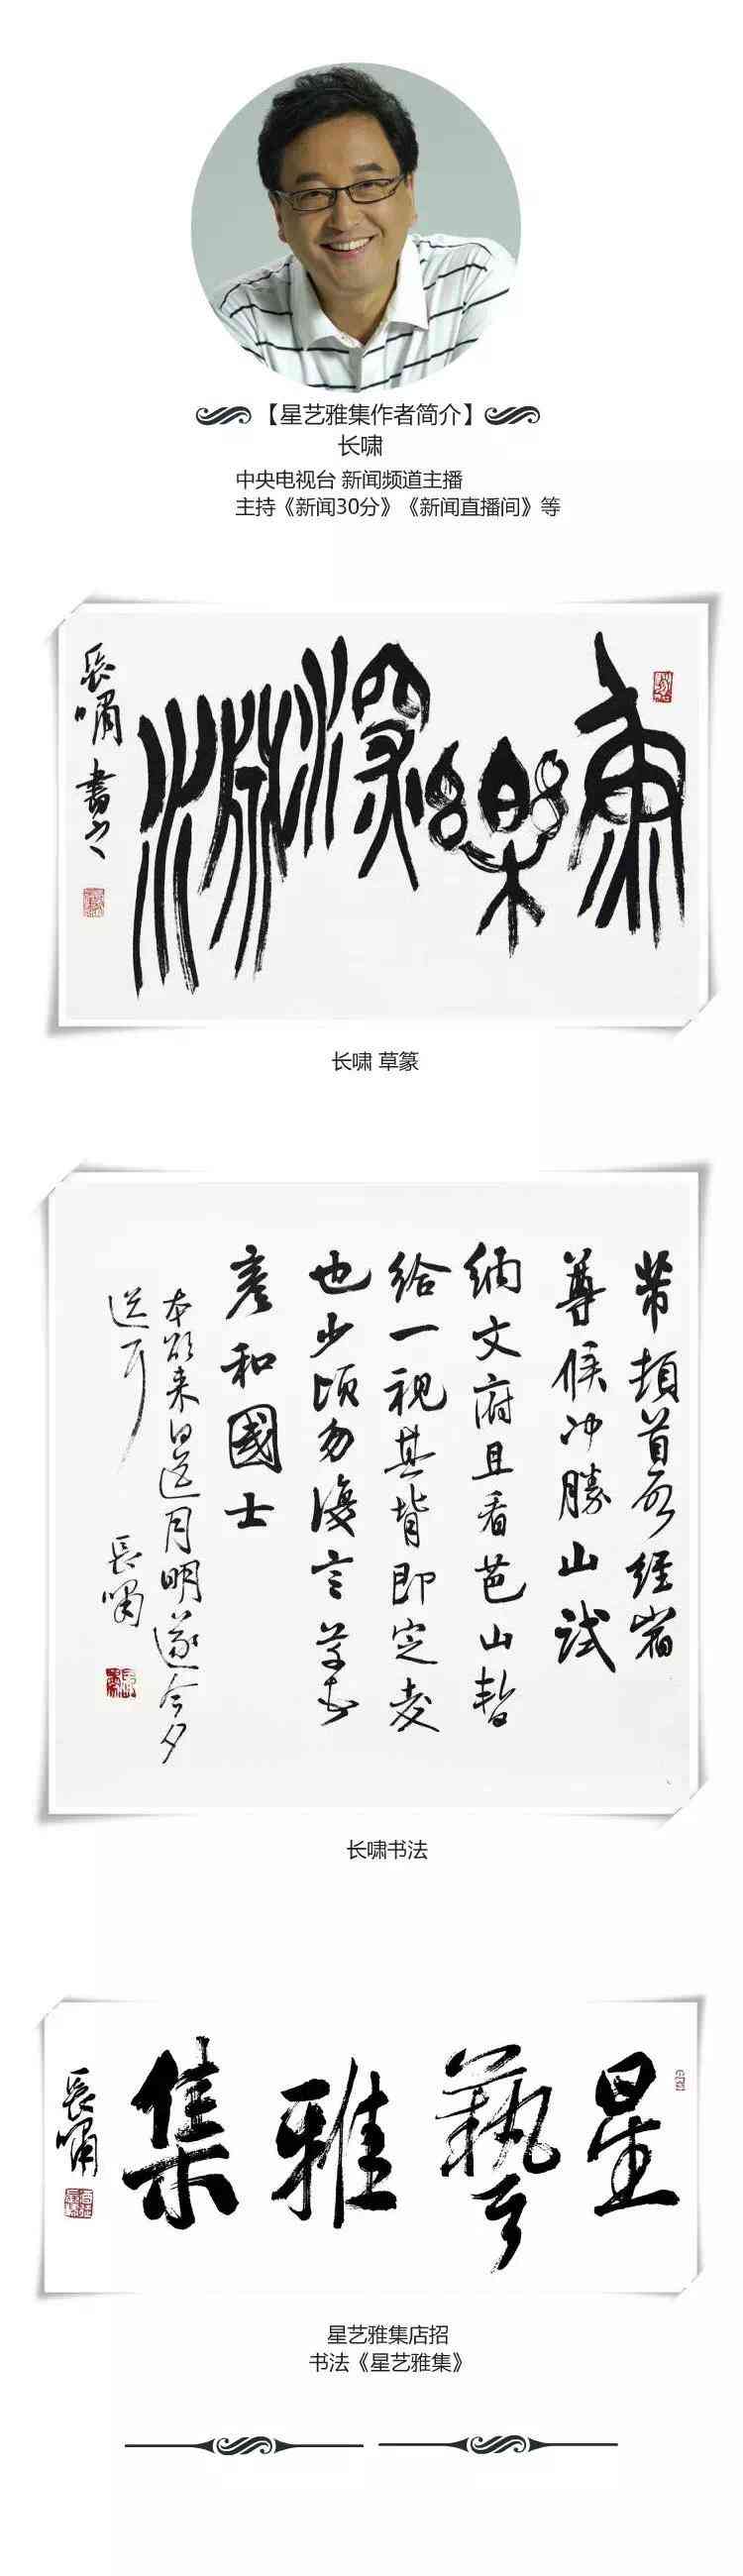 【星艺雅集作者简介】
长啸
中央电视台 新闻频道主播
主持《新闻30分》《新闻直播间》等
康樂
深淵
長嘯書之
长啸 草篆
芾頓首再啓經宿
尊候冲勝山試
納文府且看芭山暫
給一視其背即定交
也少頃勿復言芾
彦和國士
本欲来日送月明遂今夕
送耳
長嘯
长啸书法
星藝雅集
長嘯
星艺雅集店招
书法《星艺雅集》